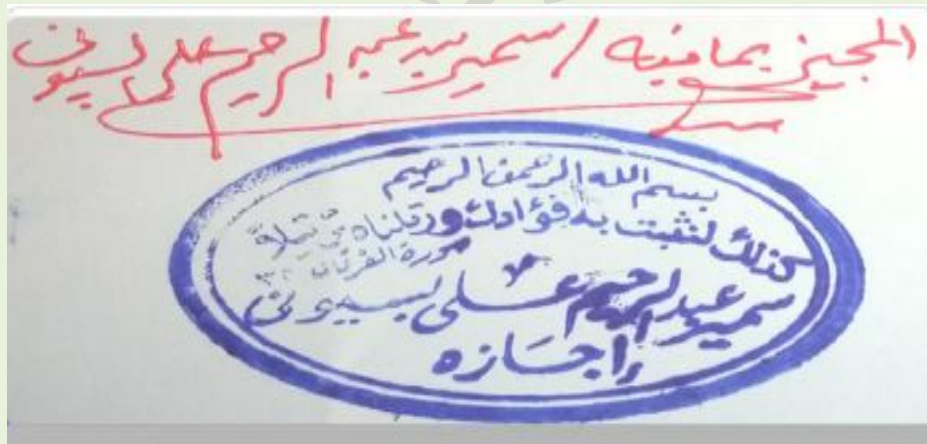 المجيز بما فيه / سمير عبد الرحيم على بسيونى
بسم الله الرحمن الرحيم
كذلك لنثبت به فؤادك ورتلناه ترتيلا
سورة الفرقان ٣٢
سمير عبد الرحيم على بسيونى
إجازه